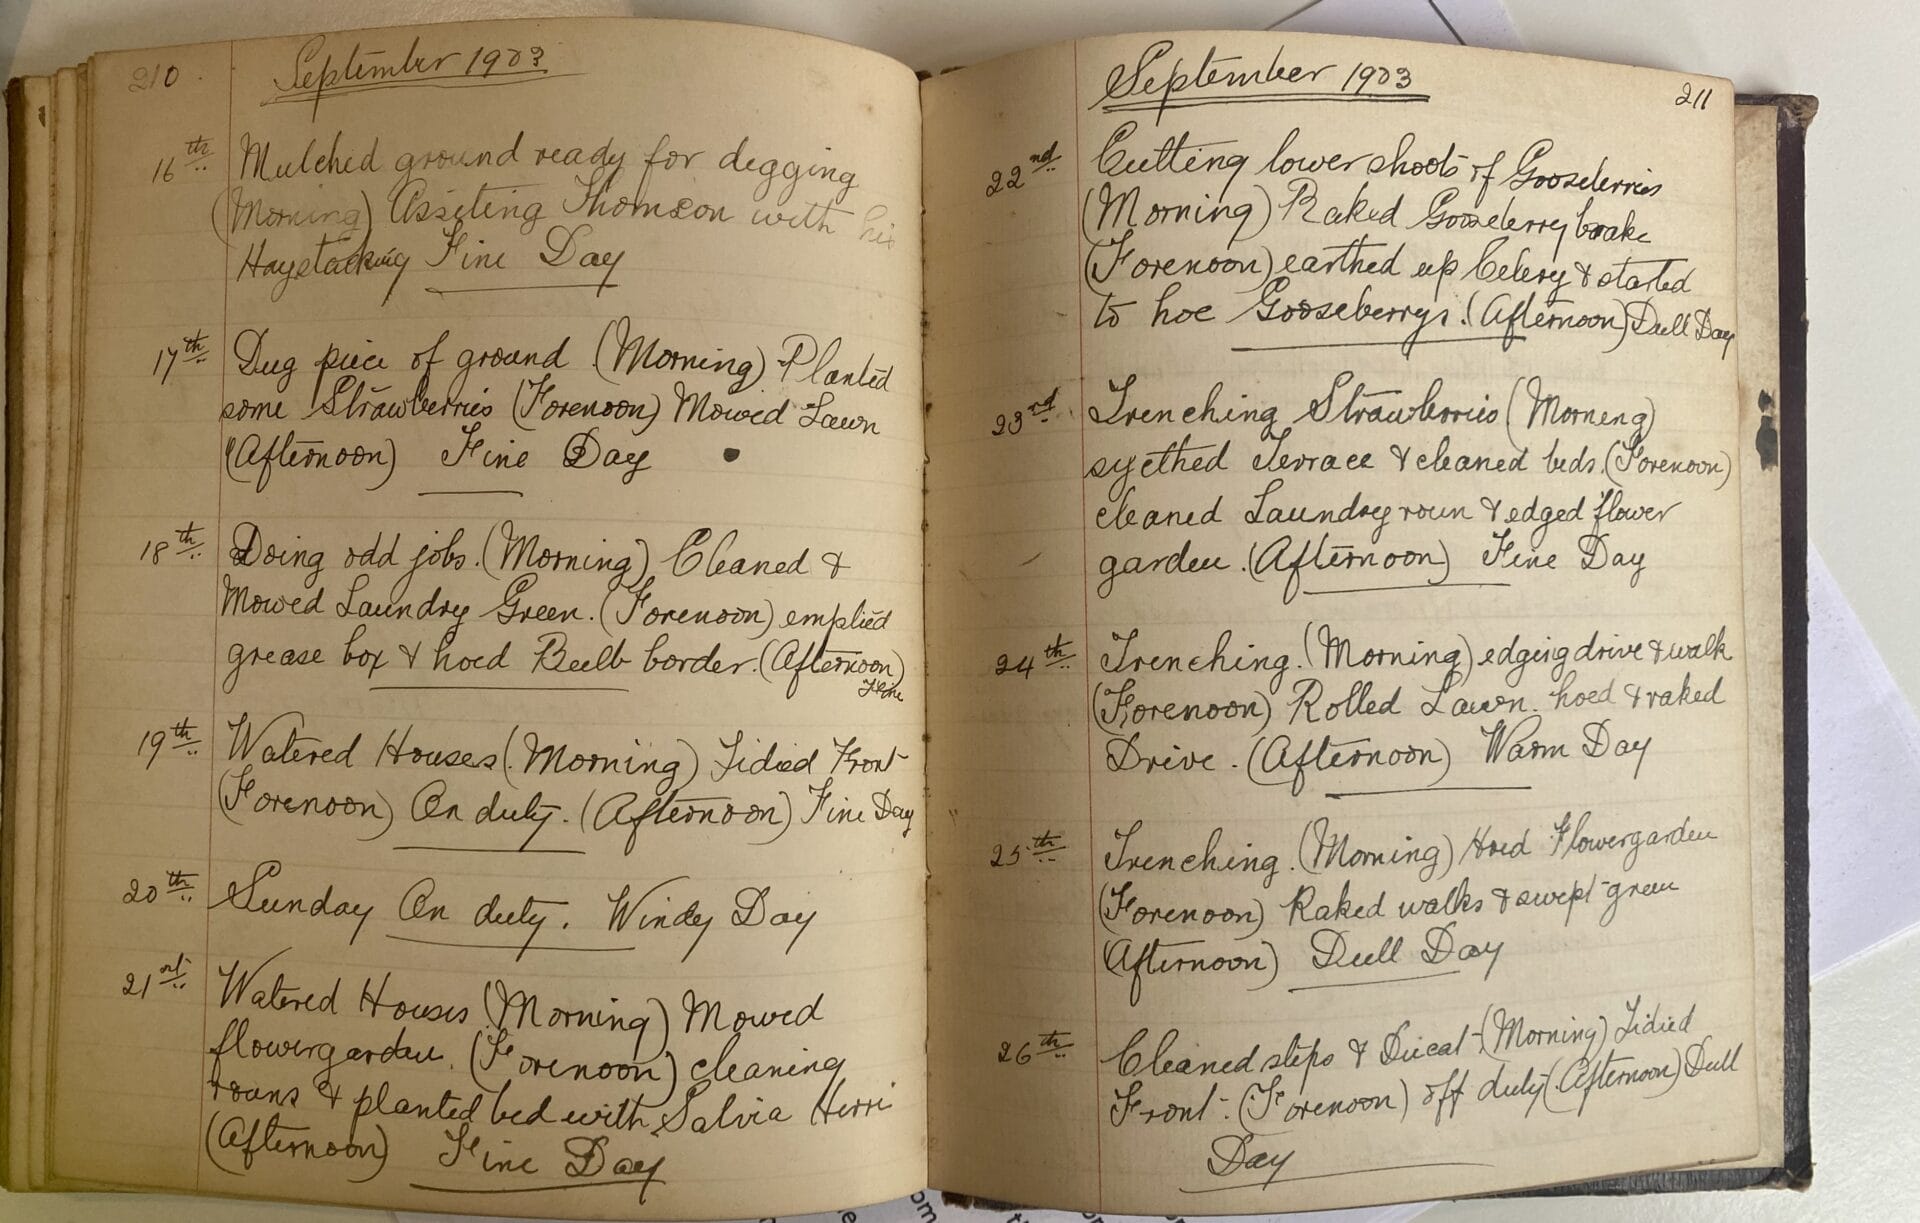 210
September 1903
16th Mulched ground ready for digging
(Morning) Assiting Thomson with his
Haystacking Fine Day
17th Dug piece of ground (Morning) Planted
some Strawberries (Forenoon) Mowed Lawn
(Afternoon) Fine Day
18th Doing odd jobs. (Morning) Cleaned &
Mowed Laundry Green. (Forenoon) emptied
grease box & hoed Bulb border. (Afternoon)
Fine
19th Watered Houses (Morning) Tidied Front
(Forenoon) On duty. (Afternoon) Fine Day
20th Sunday On duty. Windy Day
21st Watered Houses (Morning) Mowed
flowergarden. (Forenoon) cleaning
rouns & planted bed with Salvia
(Afternoon) Fine Day
September 1903
211
22nd Cutting lower shoots of Gooseberries
(Morning) Raked Gooseberry brake
(Forenoon) earthed up Celery & started
to hoe Gooseberrys. (Afternoon) Dull Day
23rd Trenching Strawberries (Morning)
sythed Terrace & cleaned beds. (Forenoon)
cleaned Laundry roun & edged flower
garden. (Afternoon) Fine Day
24th Trenching. (Morning) edging drive & walk
(Forenoon) Rolled Lawn. hoed & raked
Drive. (Afternoon) Warm Day
25th Trenching. (Morning) Hoed Flowergarden
(Forenoon) Raked walks & swept green
(Afternoon) Dull Day
26th Cleaned steps & (Morning) Tidied
Front. (Forenoon) off duty (Afternoon) Dull
Day